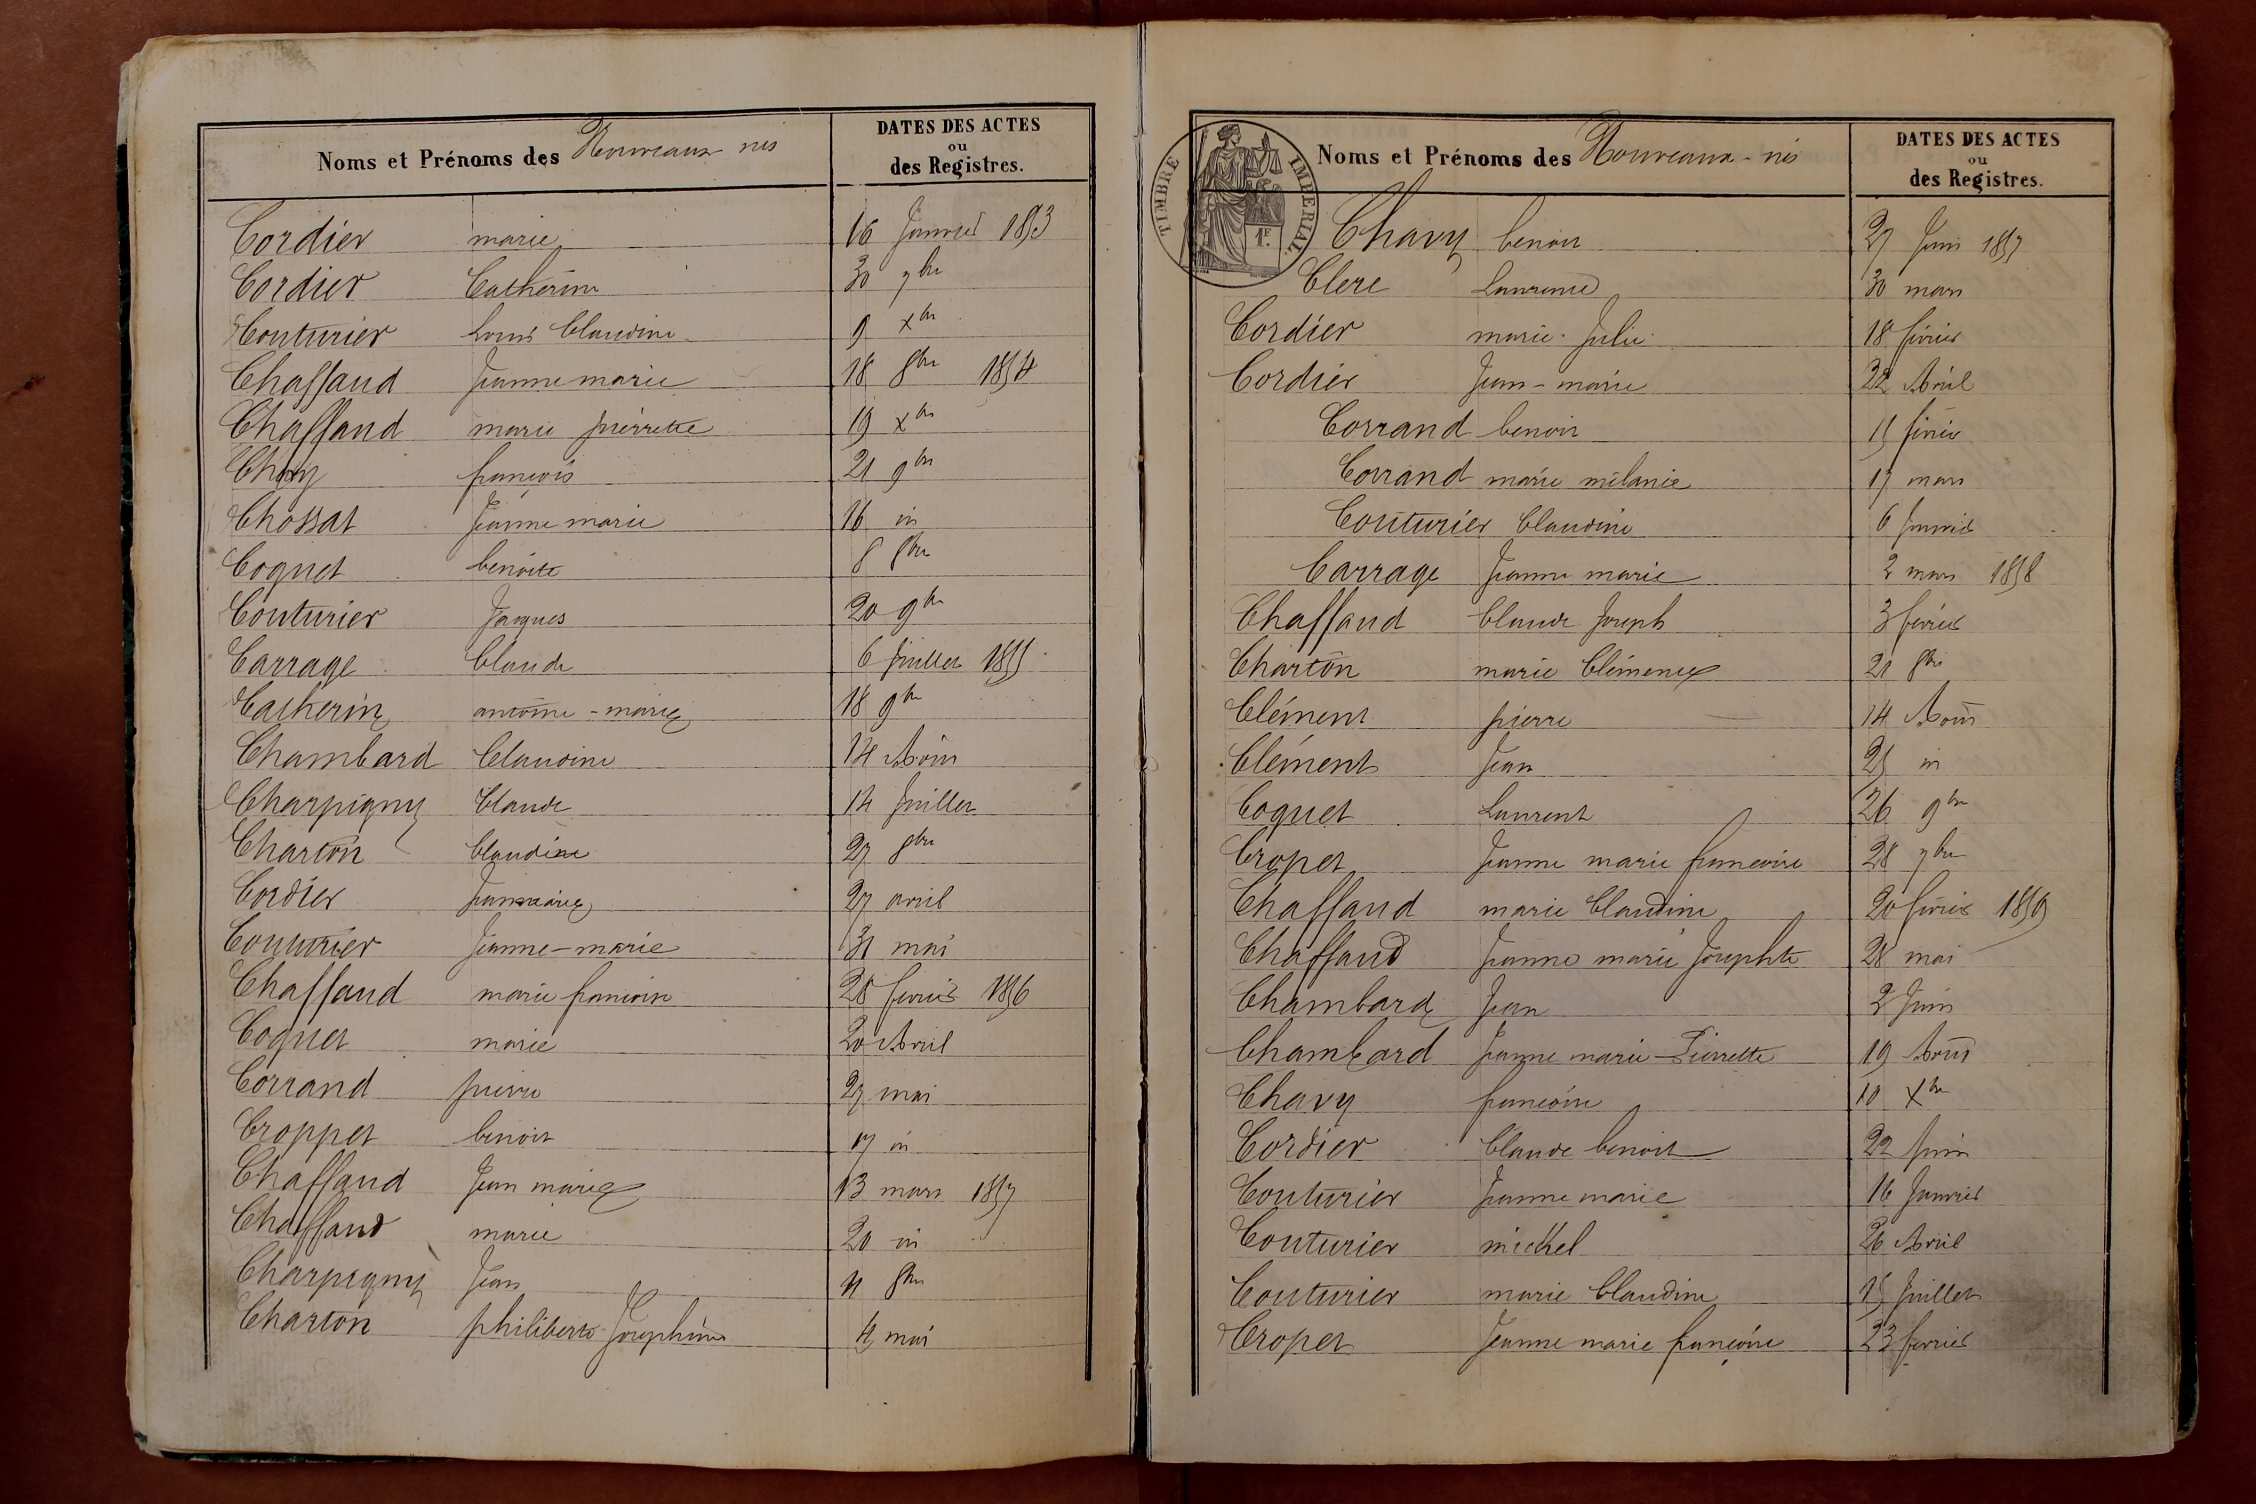 Noms et Prénoms des Nouveaux nés
DATES DES ACTES
ou
des Registres.
Cordier marie 16 Janvier 1853
Cordier Catherine 30 7bre
Couturier Louis Claudine 9 Xbre
Chaffaud Jeanne marie 18 8bre 1854
Chaffaud marie pierrette 19 Xbre
françois 21 9bre
Chossat Jeanne marie 16 id
Coquet benoite 8 8bre
Couturier Jacques 20 9bre
Carrage Claude 6 Juillet 1855
Catherin antoine - marie 18 9bre
Chambard Claudine 14 Août
Charpigny Claude 14 Juillet
Charton Claudine 27 8bre
Cordier Jeanmarie 27 avril
Couturier Jeanne - marie 31 mai
Chaffaud marie francoise 28 fevrier 1856
Coquet marie 20 Avril
Corrand pierre 27 mai
Croppet benoit 17 id
Chaffaud Jean marie 13 mars 1857
Chaffaud marie 20 id
Charpigny Jean 11 8bre
Charton philiberte Josephine 4 mai
TIMBRE IMPERIAL
1F.
Noms et Prénoms des Nouveaux - nés
DATES DES ACTES
ou
des Registres.
Chavy benoit 27 Juin 1857
Clere Laurence 30 mars
Cordier marie - Julie 18 février
Cordier Jean - marie 22 Avril
Corrand benoit 15 février
Corrand marie mélanie 17 mars
Couturier Claudine 6 Janvier
Carrage Jeanne marie 2 mars 1858
Chaffaud Claude Joseph 3 février
Charton marie Clémence 21 8bre
Clément pierre 14 Août
Clément Jean 25 id
Coquet Laurent 26 9bre
Cropet Jeanne marie francoise 28 7bre
Chaffaud marie Claudine 20 février 1859
Chaffaud Jeanne marie Josephte 28 mai
Chambard Jean 2 Juin
Chambard Jeanne marie - Pierrette 19 Août
Chavy francoise 10 Xbre
Cordier Claude benoit 22 Juin
Couturier Jeanne marie 16 Janvier
Couturier michel 26 Avril
Couturier marie Claudine 15 Juillet
Cropet Jeanne marie françoise 23 fevrier